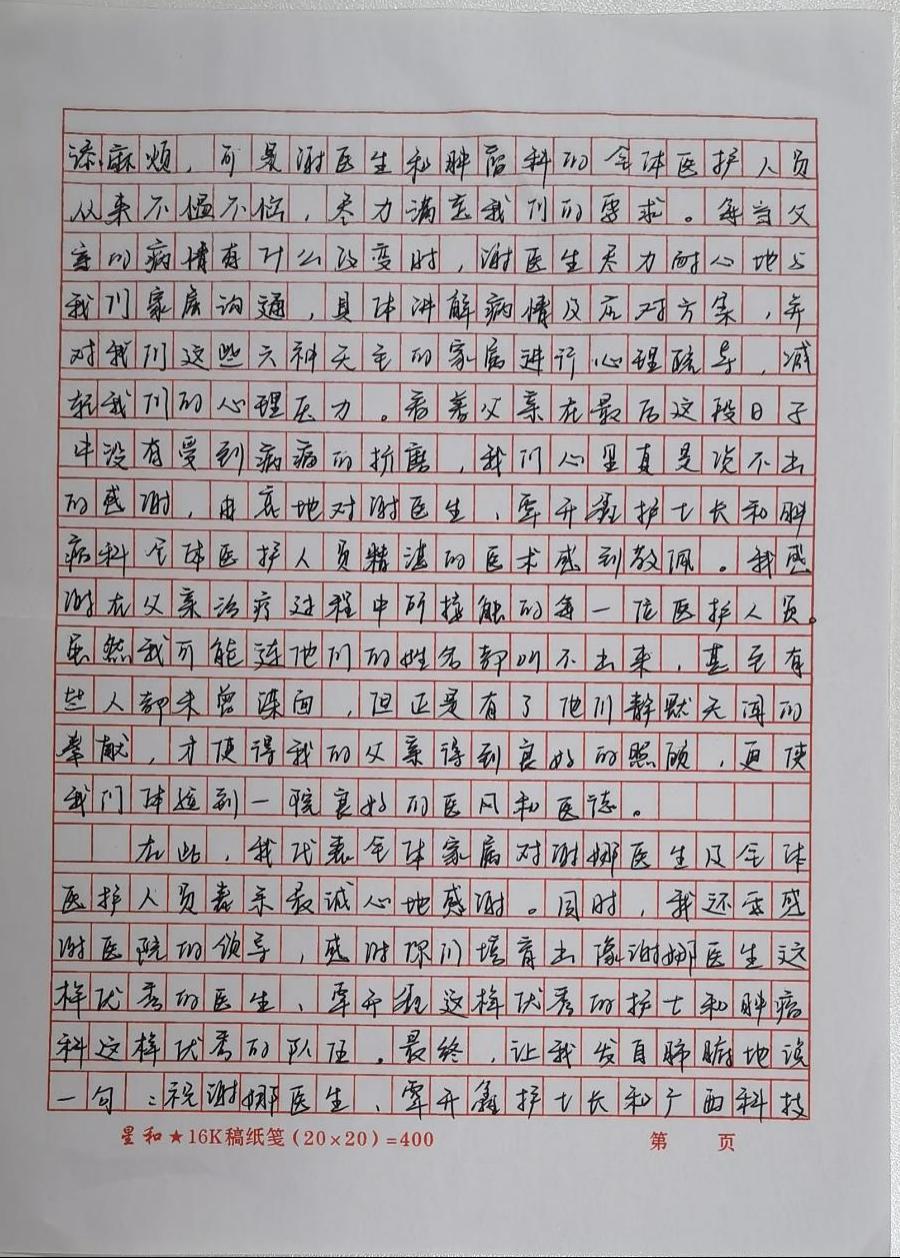 添麻烦，可是谢医生和肿瘤科的全体医护人员
从来不愠不恼，尽力满足我们的要求。每当父
亲的病情有什么改变时，谢医生尽力耐心地与
我们家属沟通，具体讲解病情及应对方案，并
对我们这些六神无主的家属进行心理疏导，减
轻我们的心理压力。看着父亲在最后这段日子
中没有受到病痛的折磨，我们心里真是说不出
的感谢，由衷地对谢医生、覃开鑫护士长和肿
瘤科全体医护人员精湛的医术感到敬佩。我感
谢在父亲治疗过程中所接触的每一位医护人员。
虽然我可能连他们的姓名都叫不出来，甚至有
些人都未曾谋面，但正是有了他们静默无闻的
奉献，才使得我的父亲得到良好的照顾，更使
我们体验到一院良好的医风和医德。
在此，我代表全体家属对谢娜医生及全体
医护人员表示最诚心地感谢。同时，我还要感
谢医院的领导，感谢你们培育出像谢娜医生这
样优秀的医生、覃开鑫这样优秀的护士和肿瘤
科这样优秀的队伍。最终，让我发自肺腑地说
一句：祝谢娜医生、覃开鑫护士长和广西科技
星和★16K稿纸笺(20×20)=400
第 页